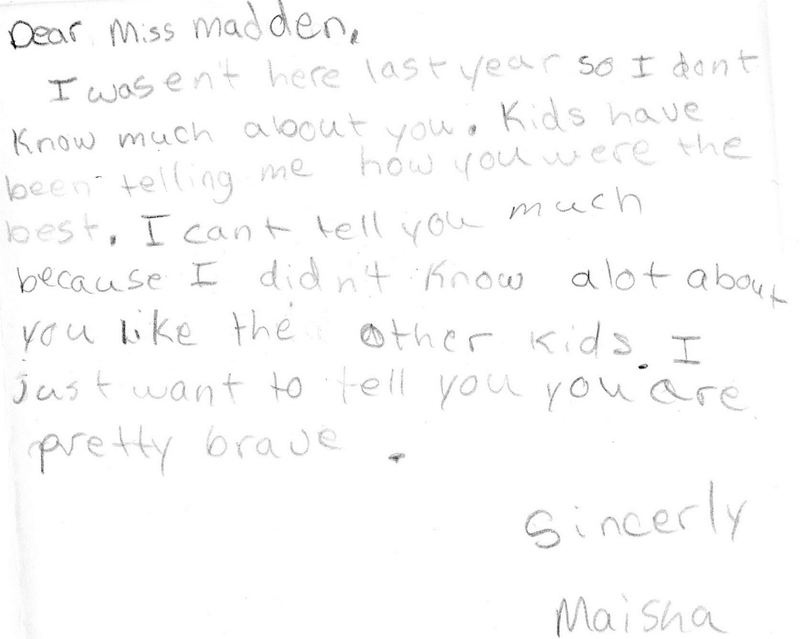 Dear Miss madden,
I wasen't here last year so I dont
Know much about you. Kids have
been telling me how you were the
best. I cant tell you much
because I didn't Know alot about
you like the other kids. I
just want to tell you you are
pretty brave.
Sincerly
Maisha